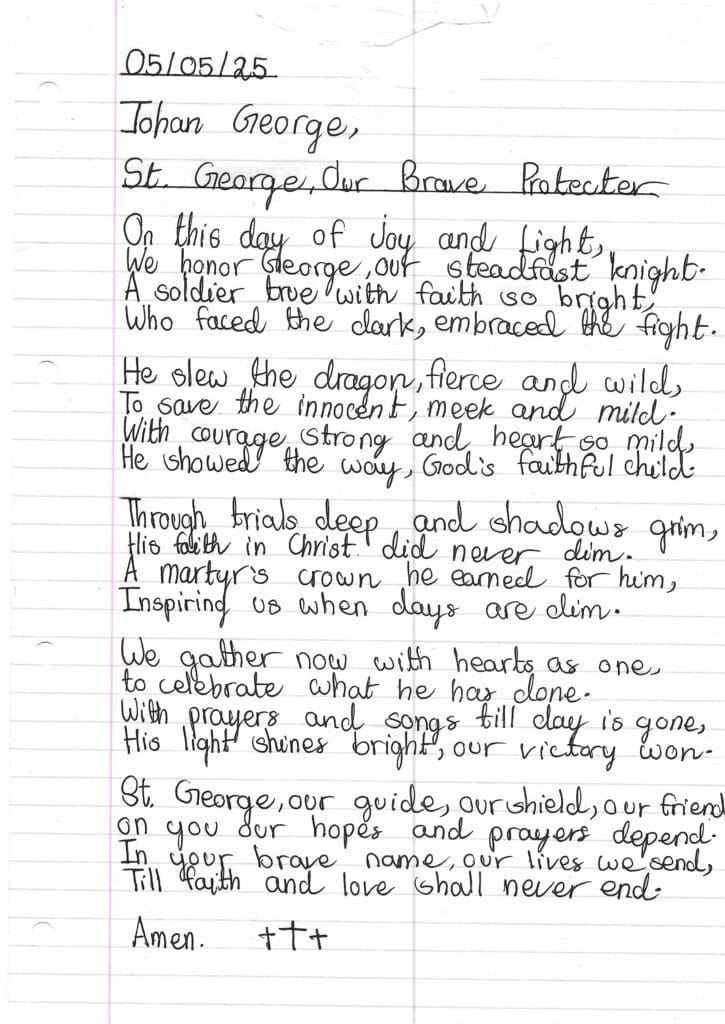 05/05/25
Johan George,
St. George, Our Brave Protecter
On this day of joy and light,
We honor George, our steadfast knight.
A soldier true with faith so bright,
Who faced the dark, embraced the fight.
He slew the dragon, fierce and wild,
To save the innocent, meek and mild.
With courage strong and heart so mild,
He showed the way, God's faithful child.
Through trials deep and shadows grim,
His faith in Christ did never dim.
A martyr's crown he earned for him,
Inspiring us when days are dim.
We gather now with hearts as one,
to celebrate what he has done.
With prayers and songs till day is gone,
His light shines bright, our victory won.
St. George, our guide, our shield, our friend
on you our hopes and prayers depend.
In your brave name, our lives we send,
Till faith and love shall never end.
Amen. †††